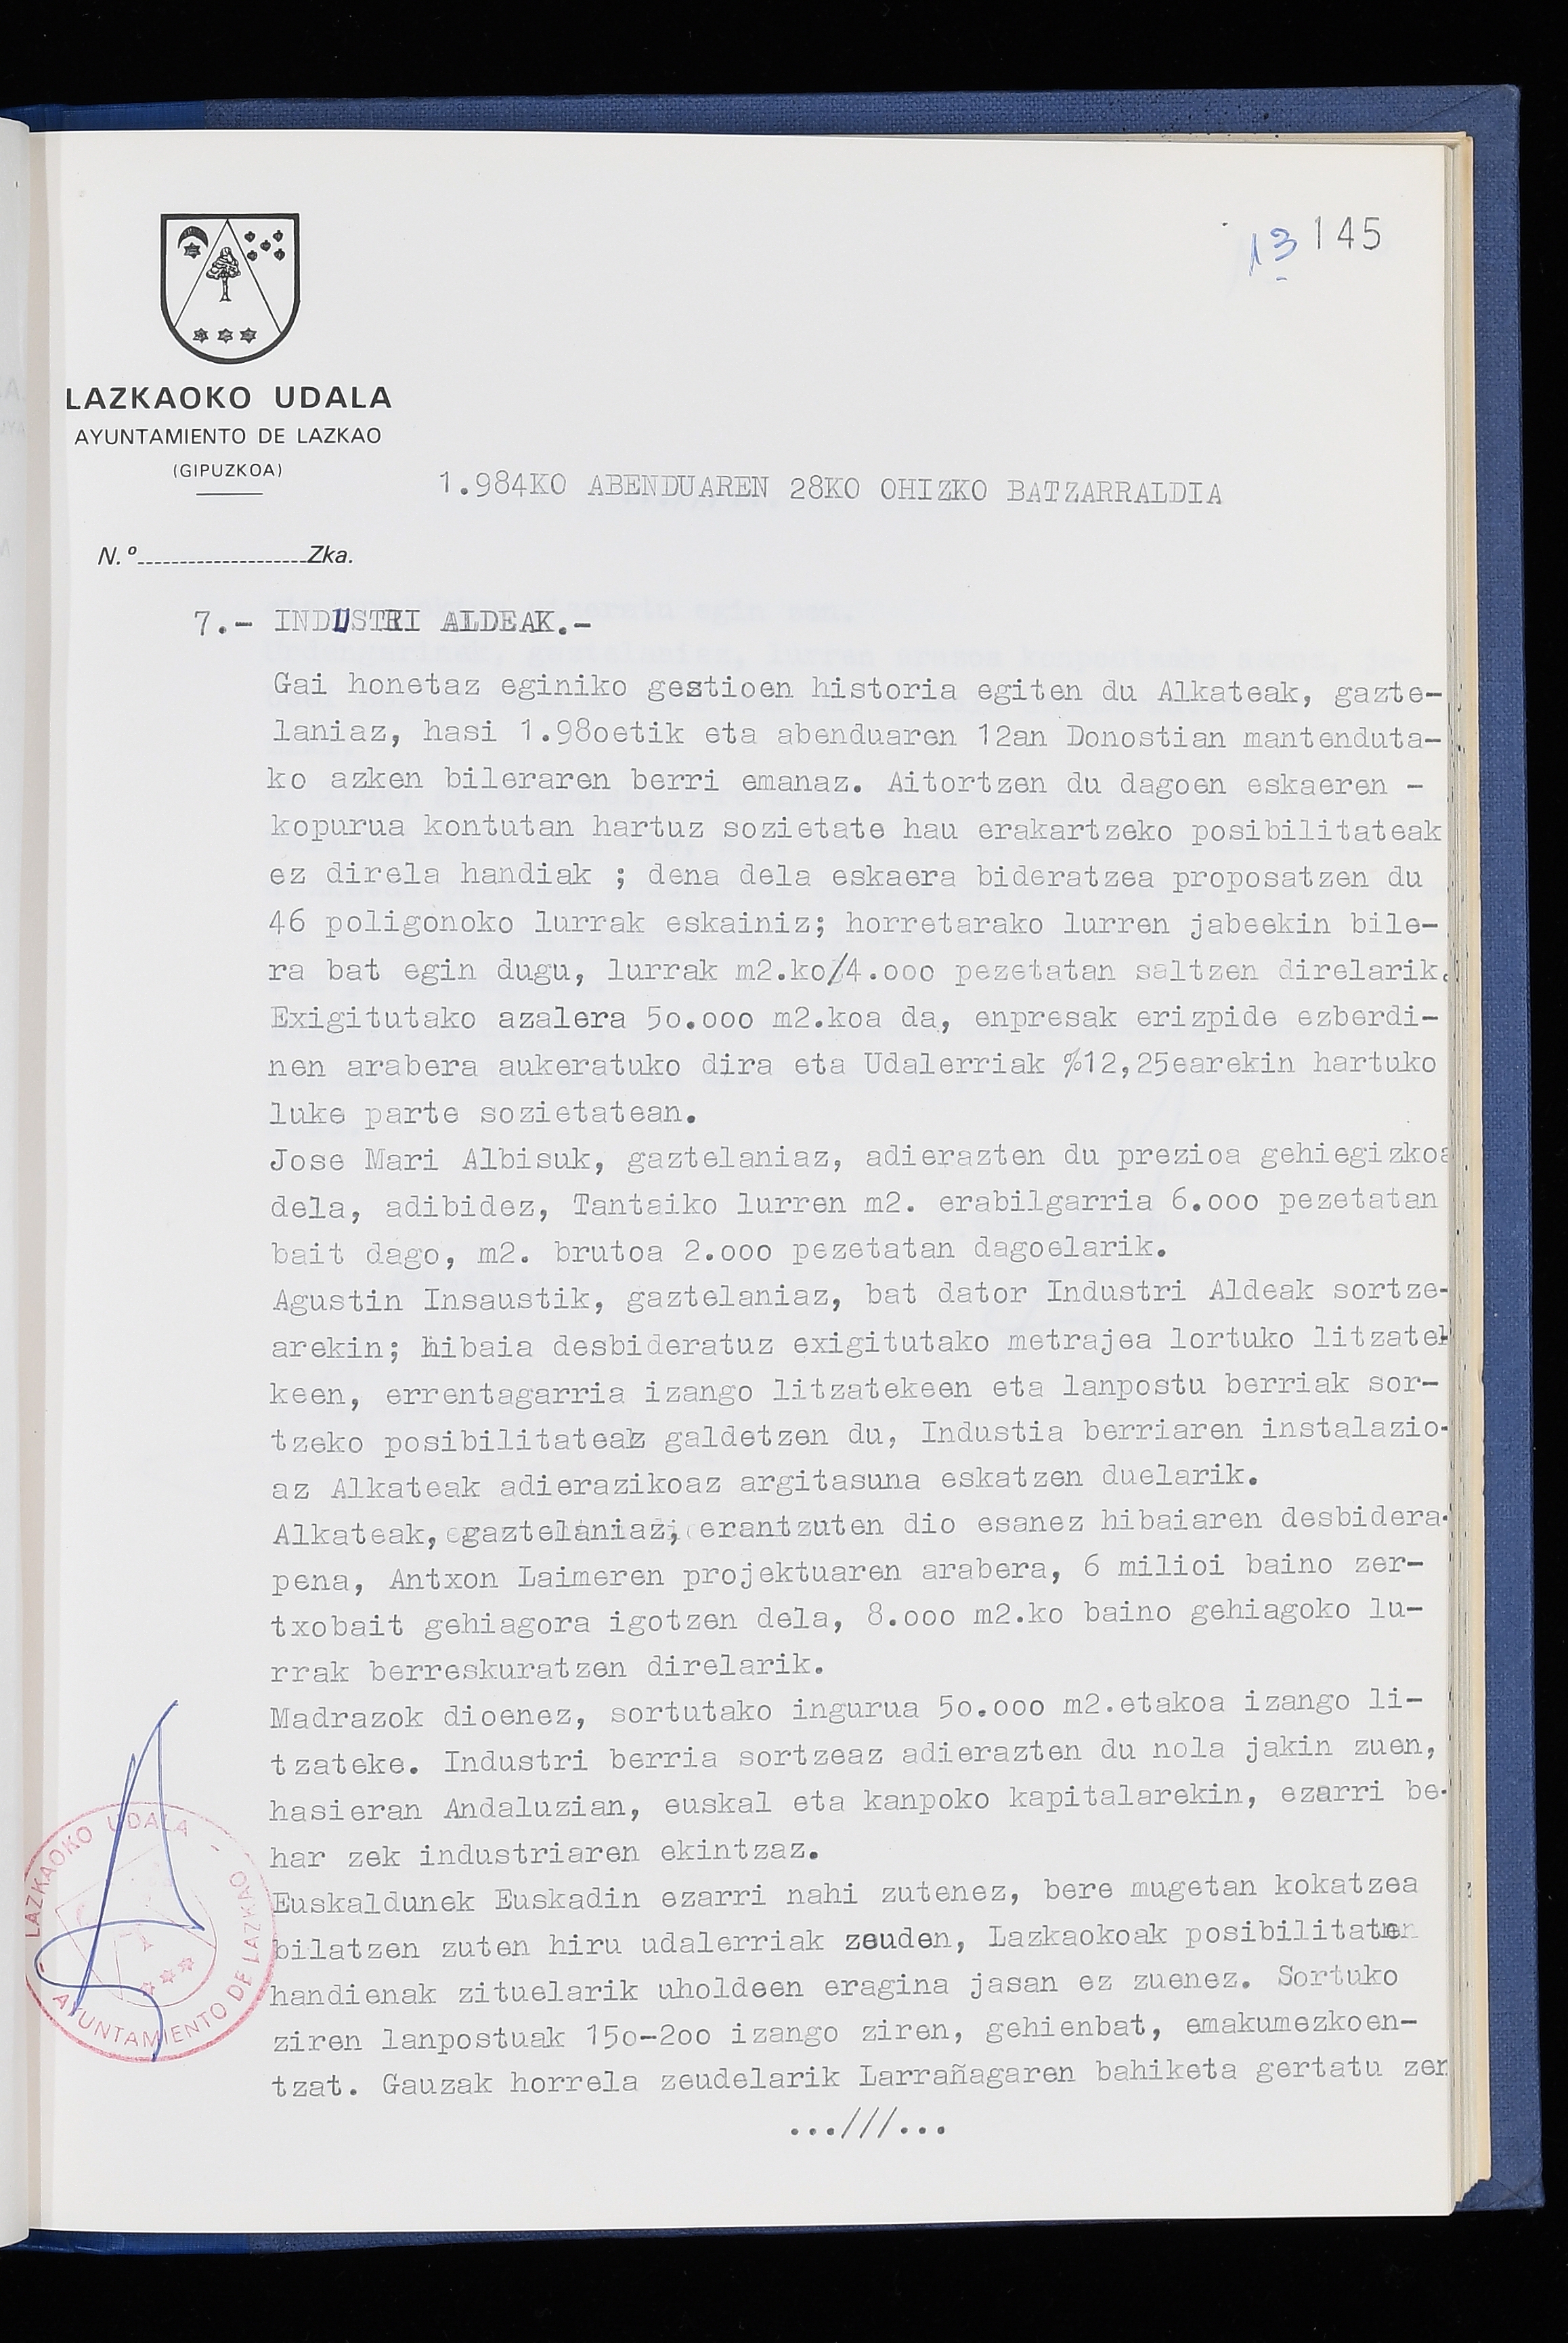 13 145
LAZKAOKO UDALA
AYUNTAMIENTO DE LAZKAO
(GIPUZKOA)
1.984KO ABENDUAREN 28KO OHIZKO BATZARRALDIA
N.º Zka.
7.- INDUSTRI ALDEAK.-
Gai honetaz eginiko gestioen historia egiten du Alkateak, gazte-
laniaz, hasi 1.98oetik eta abenduaren 12an Donostian mantenduta-
ko azken bileraren berri emanaz. Aitortzen du dagoen eskaeren -
kopurua kontutan hartuz sozietate hau erakartzeko posibilitateak
ez direla handiak ; dena dela eskaera bideratzea proposatzen du
46 poligonoko lurrak eskainiz; horretarako lurren jabeekin bile-
ra bat egin dugu, lurrak m2.ko/4.ooo pezetatan saltzen direlarik.
Exigitutako azalera 5o.ooo m2.koa da, enpresak erizpide ezberdi-
nen arabera aukeratuko dira eta Udalerriak %12,25earekin hartuko
luke parte sozietatean.
Jose Mari Albisuk, gaztelaniaz, adierazten du prezioa gehiegizkoa
dela, adibidez, Tantaiko lurren m2. erabilgarria 6.ooo pezetatan
bait dago, m2. brutoa 2.ooo pezetatan dagoelarik.
Agustin Insaustik, gaztelaniaz, bat dator Industri Aldeak sortze-
arekin; hibaia desbideratuz exigitutako metrajea lortuko litzatek
keen, errentagarria izango litzatekeen eta lanpostu berriak sor-
tzeko posibilitateaz galdetzen du, Industia berriaren instalazio-
az Alkateak adierazikoaz argitasuna eskatzen duelarik.
Alkateak, gaztelaniaz, erantzuten dio esanez hibaiaren desbidera-
pena, Antxon Laimeren projektuaren arabera, 6 milioi baino zer-
txobait gehiagora igotzen dela, 8.ooo m2.ko baino gehiagoko lu-
rrak berreskuratzen direlarik.
Madrazok dioenez, sortutako ingurua 5o.ooo m2.etakoa izango li-
tzateke. Industri berria sortzeaz adierazten du nola jakin zuen,
hasieran Andaluzian, euskal eta kanpoko kapitalarekin, ezarri be-
har zek industriaren ekintzaz.
Euskaldunek Euskadin ezarri nahi zutenez, bere mugetan kokatzea
bilatzen zuten hiru udalerriak zeuden, Lazkaokoak posibilitaten
handienak zituelarik uholdeen eragina jasan ez zuenez. Sortuko
ziren lanpostuak 15o-2oo izango ziren, gehienbat, emakumezkoen-
tzat. Gauzak horrela zeudelarik Larrañagaren bahiketa gertatu zen
...///...
LAZKAOKO UDALA - AYUNTAMIENTO DE LAZKAO -